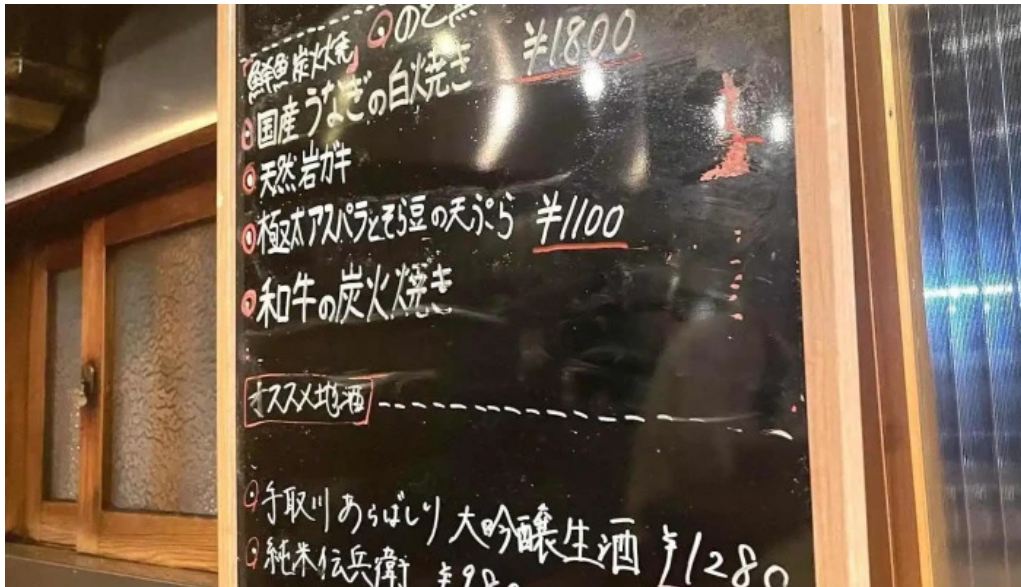 鮮魚炭火焼 のど黒
国産うなぎの白焼き ¥1800
天然岩ガキ
極太アスパラとそら豆の天ぷら ¥1100
和牛の炭火焼き
オススメ地酒
手取川 あらばしり 大吟醸生酒 ¥1280
純米 伝兵衛